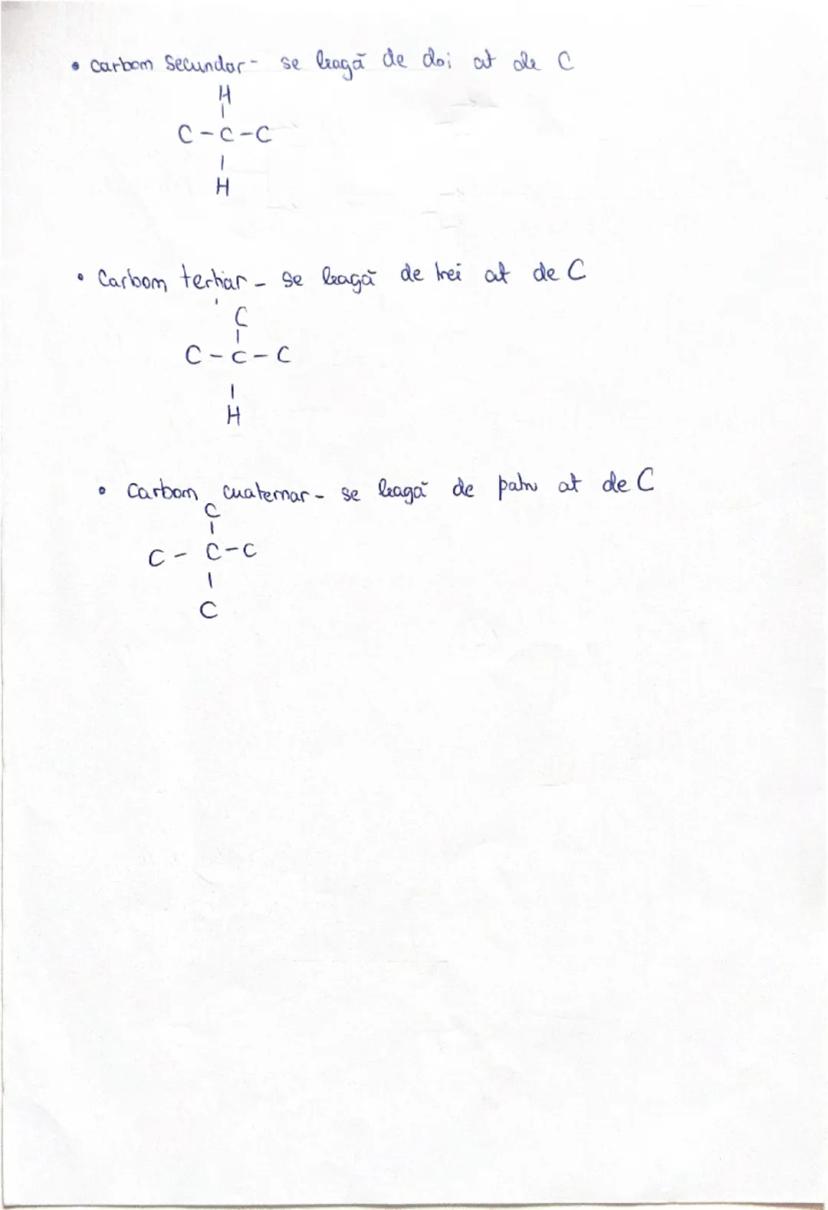 • carbon secundar - se leagă de doi at de C
H
|
C - C - C
|
H
• Carbon terțiar - se leagă de trei at de C
C
|
C - C - C
|
H
• Carbon cuaternar - se leagă de patru at de C
C
|
C - C - C
|
C